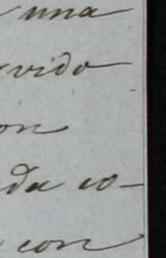 una
vido
on
da co-
con